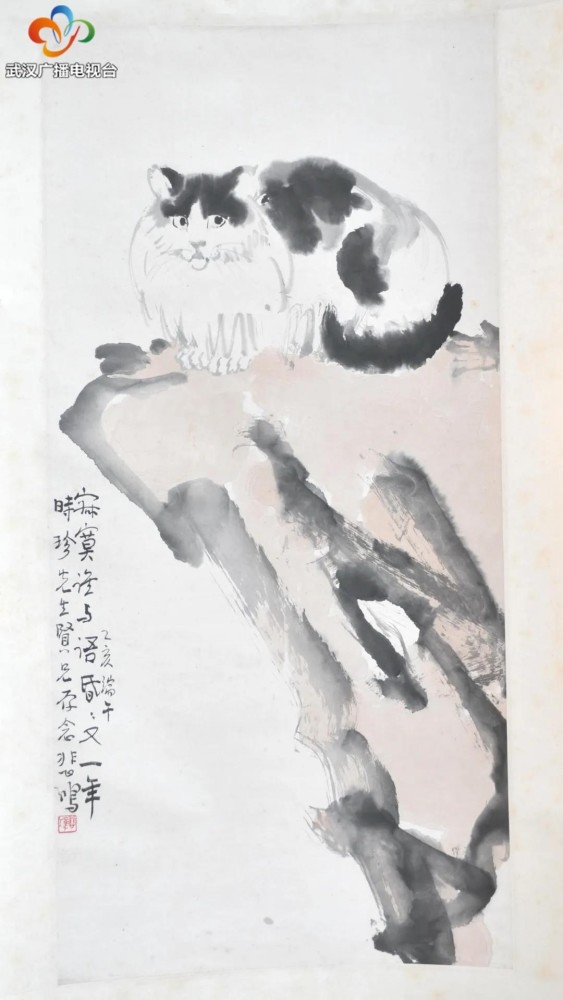 武汉广播电视台
寂寞谁与語昏〻又一年
乙亥端午
時珍先生賢兄存念悲鴻